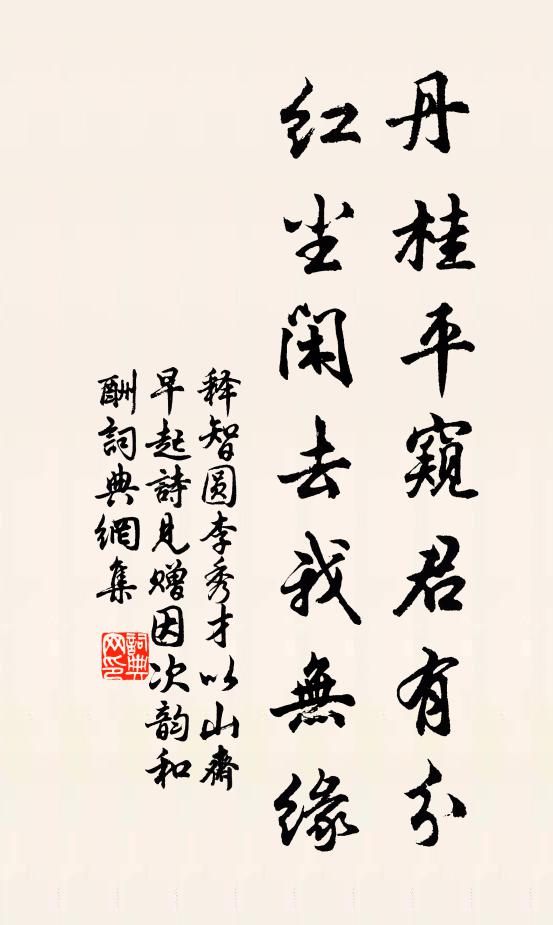 丹桂平窺君有分
红尘闲去我無緣
释智圆李秀才以山齋
早起詩見贈因次韵和
酬詞典網集
詞典網印